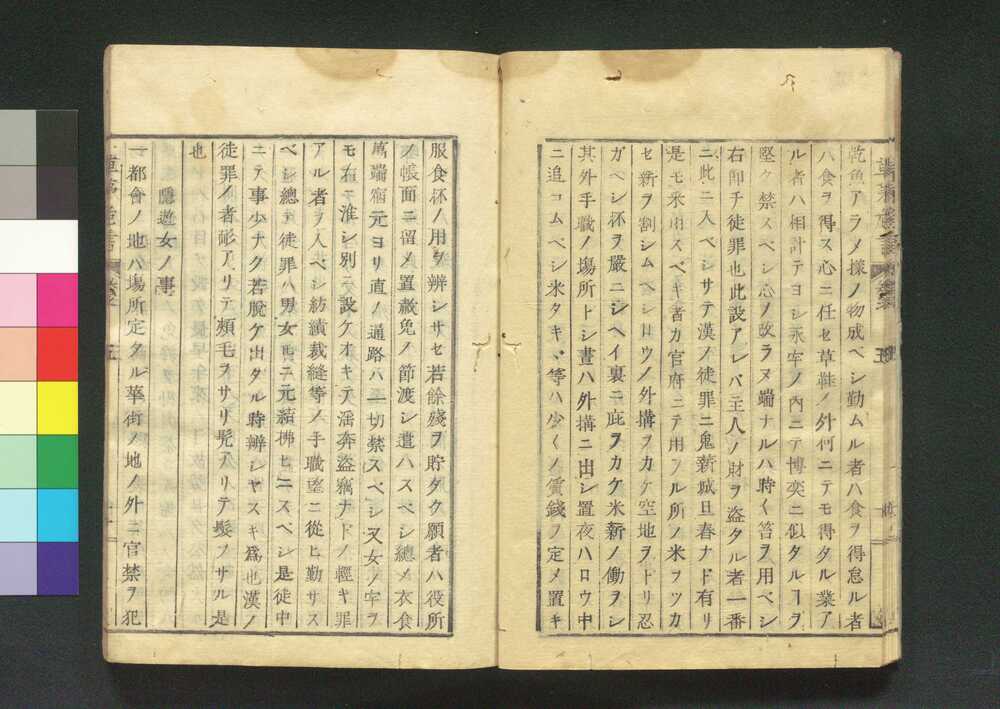 乾魚アラメ樣ノ物成ベシ勤ムル者ハ食ヲ得怠ル者
ハ食ヲ得ス心ニ任セ草鞋ノ外何ニテモ得タル業ア
ル者ハ相計テヨシ永牢ノ內ニテ博奕ニ似タルヿヲ
堅ク禁スベシ忿ノ故ラヌ端ナルハ時〻笞ヲ用ベシ
右卽チ徒罪也此設アレバ主人ノ財ヲ盗タル者一番
ニ此ニ入ベシサテ漢ノ徒罪ニ鬼薪城旦舂ナド有リ
是モ采用スベキ者カ官府ニテ用フル所ノ米ヲツカ
セ新ヲ割シムベシロウノ外搆ヲカケ空地ヲトリ忍
ガヘシ杯ヲ嚴ニシヘイ裏ニ庇ヲカケ米新ノ働ヲシ
其外手職ノ塲所トシ晝ハ外搆ニ出シ置夜ハロウ中
ニ追コムベシ米タキ、等ハ少〻ノ賃錢ヲ定メ置キ
服食杯ノ用ヲ辨シサセ若餘殘ヲ貯タク願者ハ役所
ノ帳面ニ留メ置赦免ノ節渡シ遣ハスベシ總メ衣食
萬端宿元ヨリ直ノ通路ハ一切禁スベシ又女ノ牢ヲ
モ右ニ准シ別ニ設ケオキテ淫奔盗竊ナドノ輕キ罪
アル者ヲ入ベシ紡績裁縫等ノ手職望ニ從ヒ勤サス
ベシ總テ徒罪ハ男女𪜈ニ元結拂ヒニスベシ是徒中
ニテ事少ナク若脫ケ出タル時辨シヤスキ爲也漢ノ
徒罪ノ者耏アリテ頰毛ヲサリ髡アリテ髮ヲサル是
也
隱遊女ノ事
一都會ノ地ハ塲所定タル華街ノ地ノ外ニ官禁ヲ犯